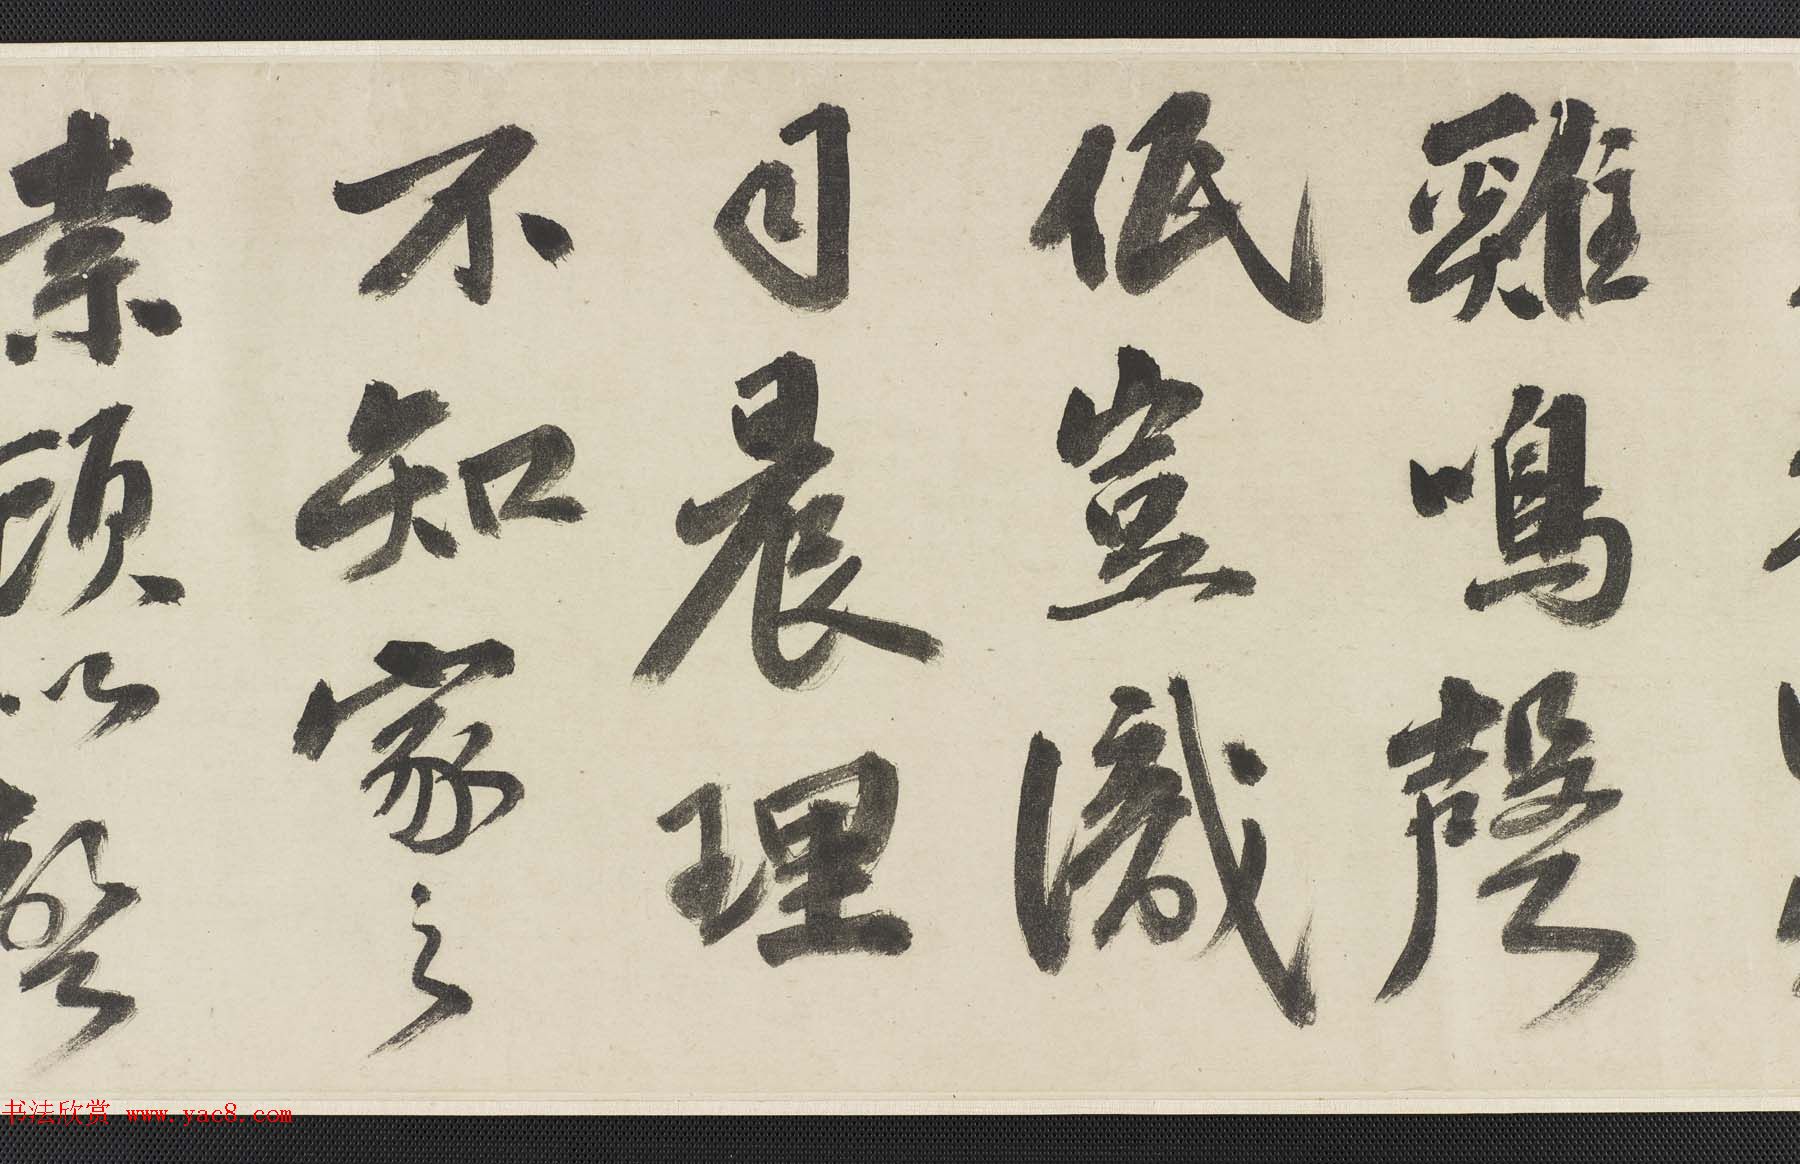 雞鳴聲
低豈識
司晨理
不知家之
索顧以
书法欣赏 www.yac8.com